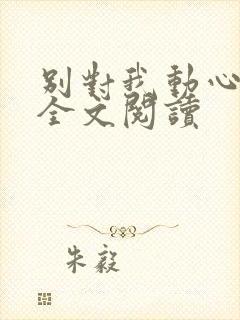 別對我動心
全文閱讀
朱毅